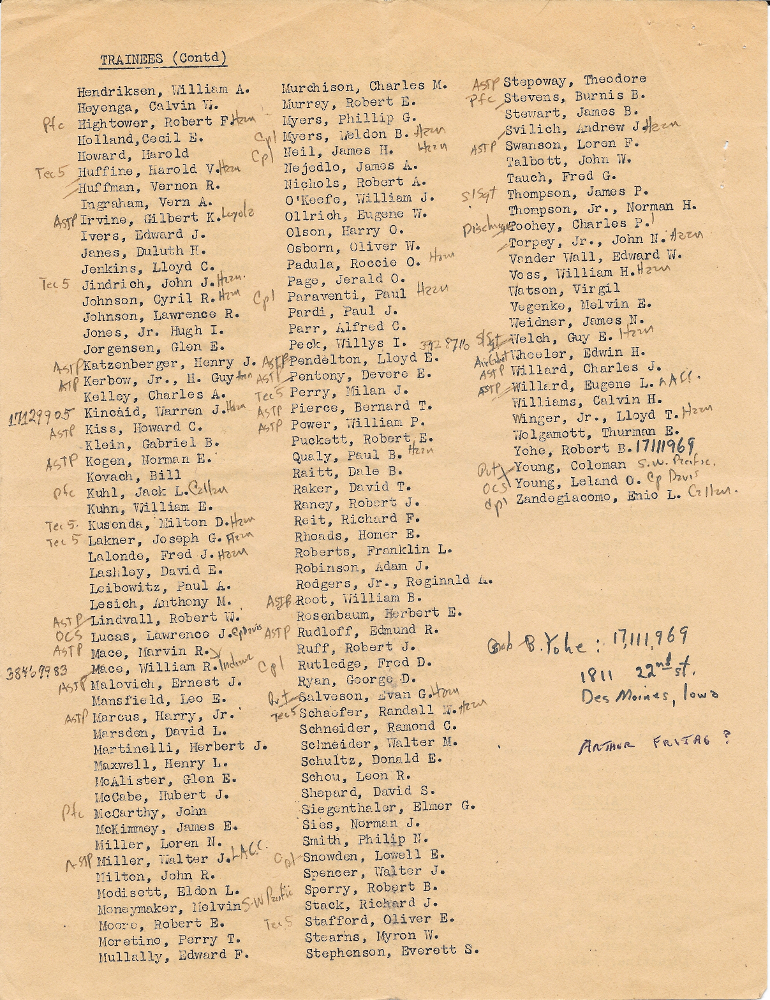 TRAINEES (Contd)
Hendriksen, William A.
Heyonga, Calvin W.
Pfc Hightower, Robert F. Hzzn
Holland, Cecil E.
Howard, Harold
Tec 5 Huffine, Harold V. Hzzn
Huffman, Vernon R.
Ingraham, Vern A.
ASTP Irvine, Gilbert K. Loyola
Ivers, Edward J.
Janes, Duluth H.
Jenkins, Lloyd C.
Tec 5 Jindrich, John J. Hzzn.
Johnson, Cyril R. Hzzn
Johnson, Lawrence R.
Jones, Jr. Hugh I.
Jorgensen, Glen E.
ASTP Katzenberger, Henry J.
ATP Kerbow, Jr., H. Guy
Kelley, Charles A.
17129905 Kincaid, Warren J. Hzzn
ASTP Kiss, Howard C.
Klein, Gabriel B.
ASTP Kogen, Norman E.
Kovach, Bill
Pfc Kuhl, Jack L.
Kuhn, William E.
Tec 5. Kusonda, Milton D. Hzzn
Tec 5 Lakner, Joseph G. Hzzn
Lalonde, Fred J. Hzzn
Lashley, David E.
Leibowitz, Paul A.
Lesich, Anthony M.
ASTP Lindvall, Robert W.
OCS Lucas, Lawrence J. Cp Davis
ASTP Mace, Marvin R.
38467983 Mace, William R.
ASTP Malovich, Ernest J.
Mansfield, Leo E.
ASTP Marcus, Harry, Jr.
Marsden, David L.
Martinelli, Herbert J.
Maxwell, Henry L.
McAlister, Glen E.
McCabe, Hubert J.
Pfc McCarthy, John
McKimmey, James E.
Miller, Loren N.
ASTP Miller, Walter J. LACC.
Milton, John R.
Modisett, Eldon L.
Moneymaker, Melvin S.W Pacific
Moore, Robert E.
Moretino, Perry T.
Mullally, Edward F.
Murchison, Charles M.
Murray, Robert E.
Myers, Phillip G.
Cpl Myers, Weldon B. Hzzn
Cpl Neil, James H. Hzzn
Nejedlo, James A.
Nichols, Robert A.
O'Keefe, William J.
Ollrich, Eugene W.
Olson, Harry O.
Osborn, Oliver W.
Padula, Roccio O. Hzzn
Page, Jerald O.
Cpl Paraventi, Paul Hzzn
Pardi, Paul J.
Parr, Alfred C.
Peck, Willys I.
ASTP Pendelton, Lloyd E.
ASTP Pentony, Devere E.
Tec 5 Perry, Milan J.
ASTP Pierce, Bernard T.
ASTP Power, William P.
Puckett, Robert E.
Qualy, Paul B. Hzzn
Raitt, Dale B.
Raker, David T.
Raney, Robert J.
Reit, Richard F.
Rhoads, Homer E.
Roberts, Franklin L.
Robinson, Adam J.
Rodgers, Jr., Reginald A.
ASTP Root, William B.
Rosenbaum, Herbert E.
ASTP Rudloff, Edmund R.
Ruff, Robert J.
Cpl Rutledge, Fred D.
Ryan, George D.
Pvt Salveson, Evan G. Hzzn
Tec 5 Schaefer, Randall W. Hzzn
Schneider, Ramond C.
Schneider, Walter M.
Schultz, Donald E.
Schou, Leon R.
Shepard, David S.
Siegenthaler, Elmer G.
Sies, Norman J.
Smith, Philip N.
Cpl Snowden, Lowell E.
Spencer, Walter J.
Sperry, Robert B.
Stack, Richard J.
Tec 5 Stafford, Oliver E.
Stearns, Myron W.
Stephenson, Everett S.
ASTP Stepoway, Theodore
Pfc Stevens, Burnis B.
Stewart, James B.
Svilich, Andrew J. Hzzn
ASTP Swanson, Loren F.
Talbott, John W.
Tauch, Fred G.
S/Sgt Thompson, James P.
Thompson, Jr., Norman H.
Discharge Toohey, Charles P.
Torpey, Jr., John N. Hzzn
Vander Wall, Edward W.
Voss, William H. Hzzn
Watson, Virgil
Wegenke, Melvin E.
Weidner, James N.
S/Sgt Welch, Guy E. Hzzn
Air Cadet Wheeler, Edwin H.
ASTP Willard, Charles J.
ASTP Willard, Eugene L. LACC.
Williams, Calvin H.
Winger, Jr., Lloyd T. Hzzn
Wolgamott, Thurman E.
Yohe, Robert B. 17111969
Pvt Young, Coleman S.W. Pacific.
OCS Young, Leland O. Cp Davis
Cpl Zandegiacomo, Enio L.
Bob B. Yohe: 17,111,969
1811 22nd St.
Des Moines, Iowa
ARTHUR FRITAG ?